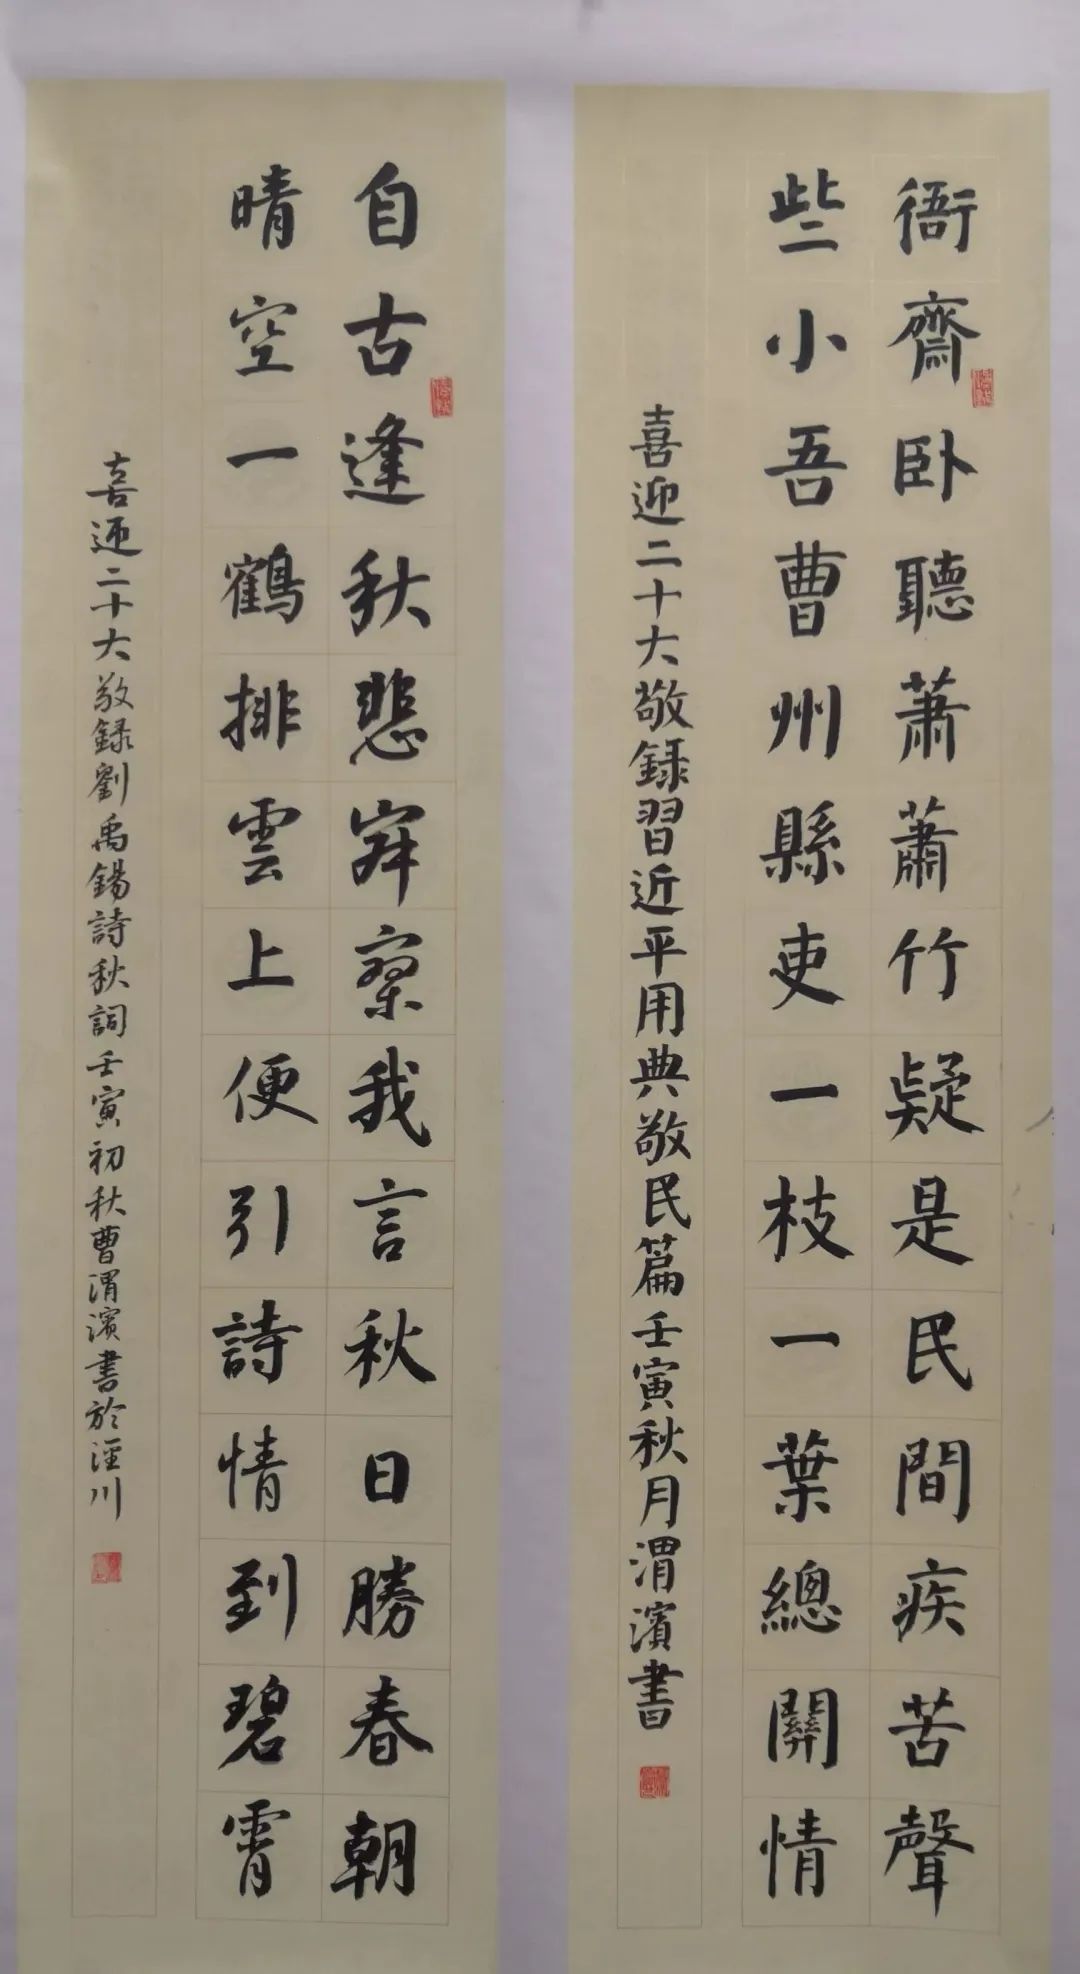 衙齋卧聽蕭蕭竹疑是民間疾苦聲
些小吾曹州縣吏一枝一葉總關情
喜迎二十大敬録習近平用典敬民篇壬寅秋月渭濱書
自古逢秋悲寂寥我言秋日勝春朝
晴空一鶴排雲上便引詩情到碧霄
喜迎二十大敬録劉禹錫詩秋詞壬寅初秋曹渭濱書於涇川